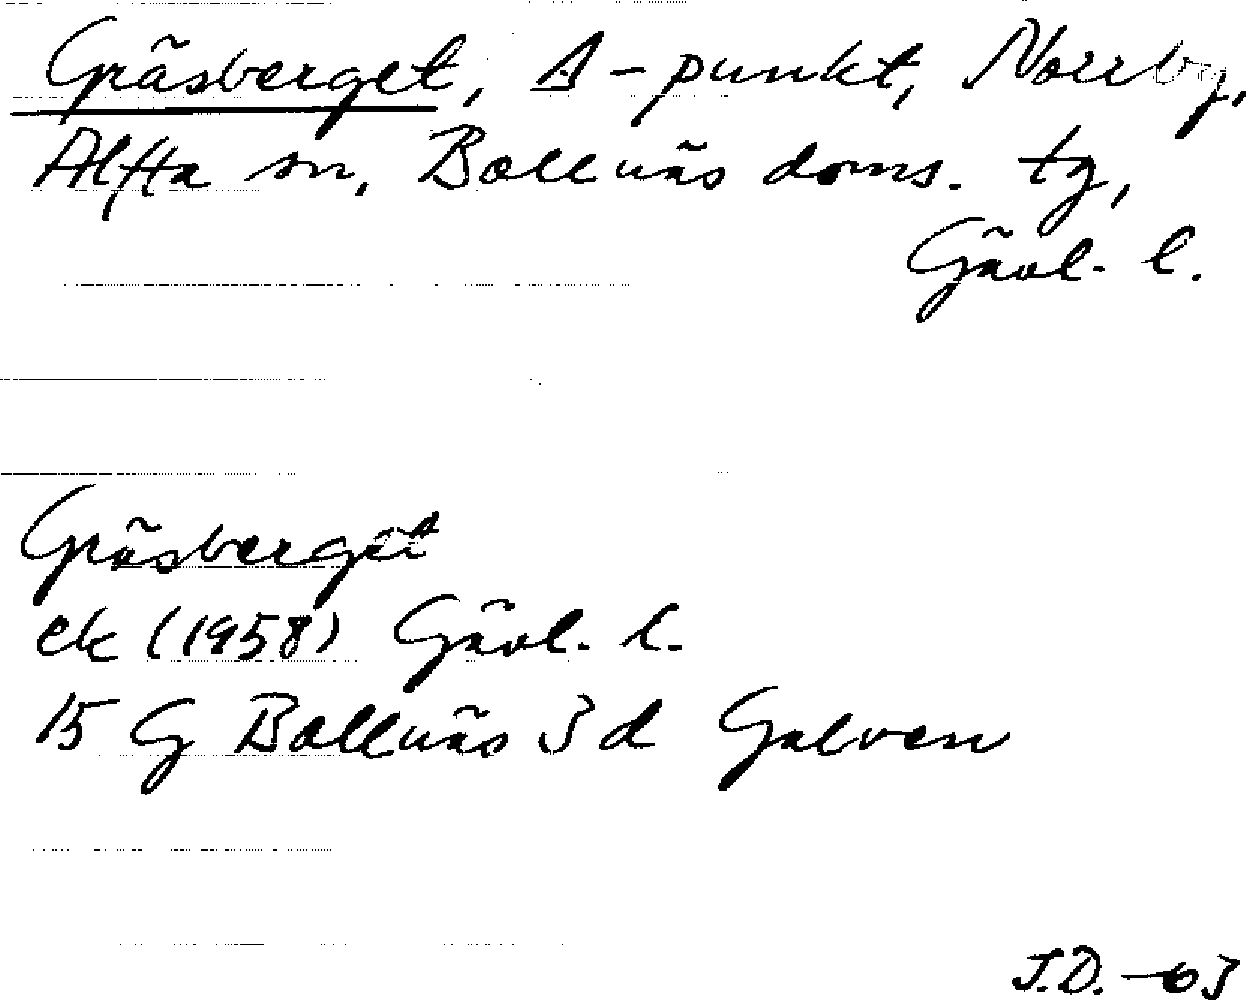 Gräsberget, Δ-punkt, Norrby,
Alfta sn, Bollnäs doms. tg,
Gävl. l.
Gräsberget
ek (1958) Gävl. l.
15 G Bollnäs 3 d Galven
J.D. -63